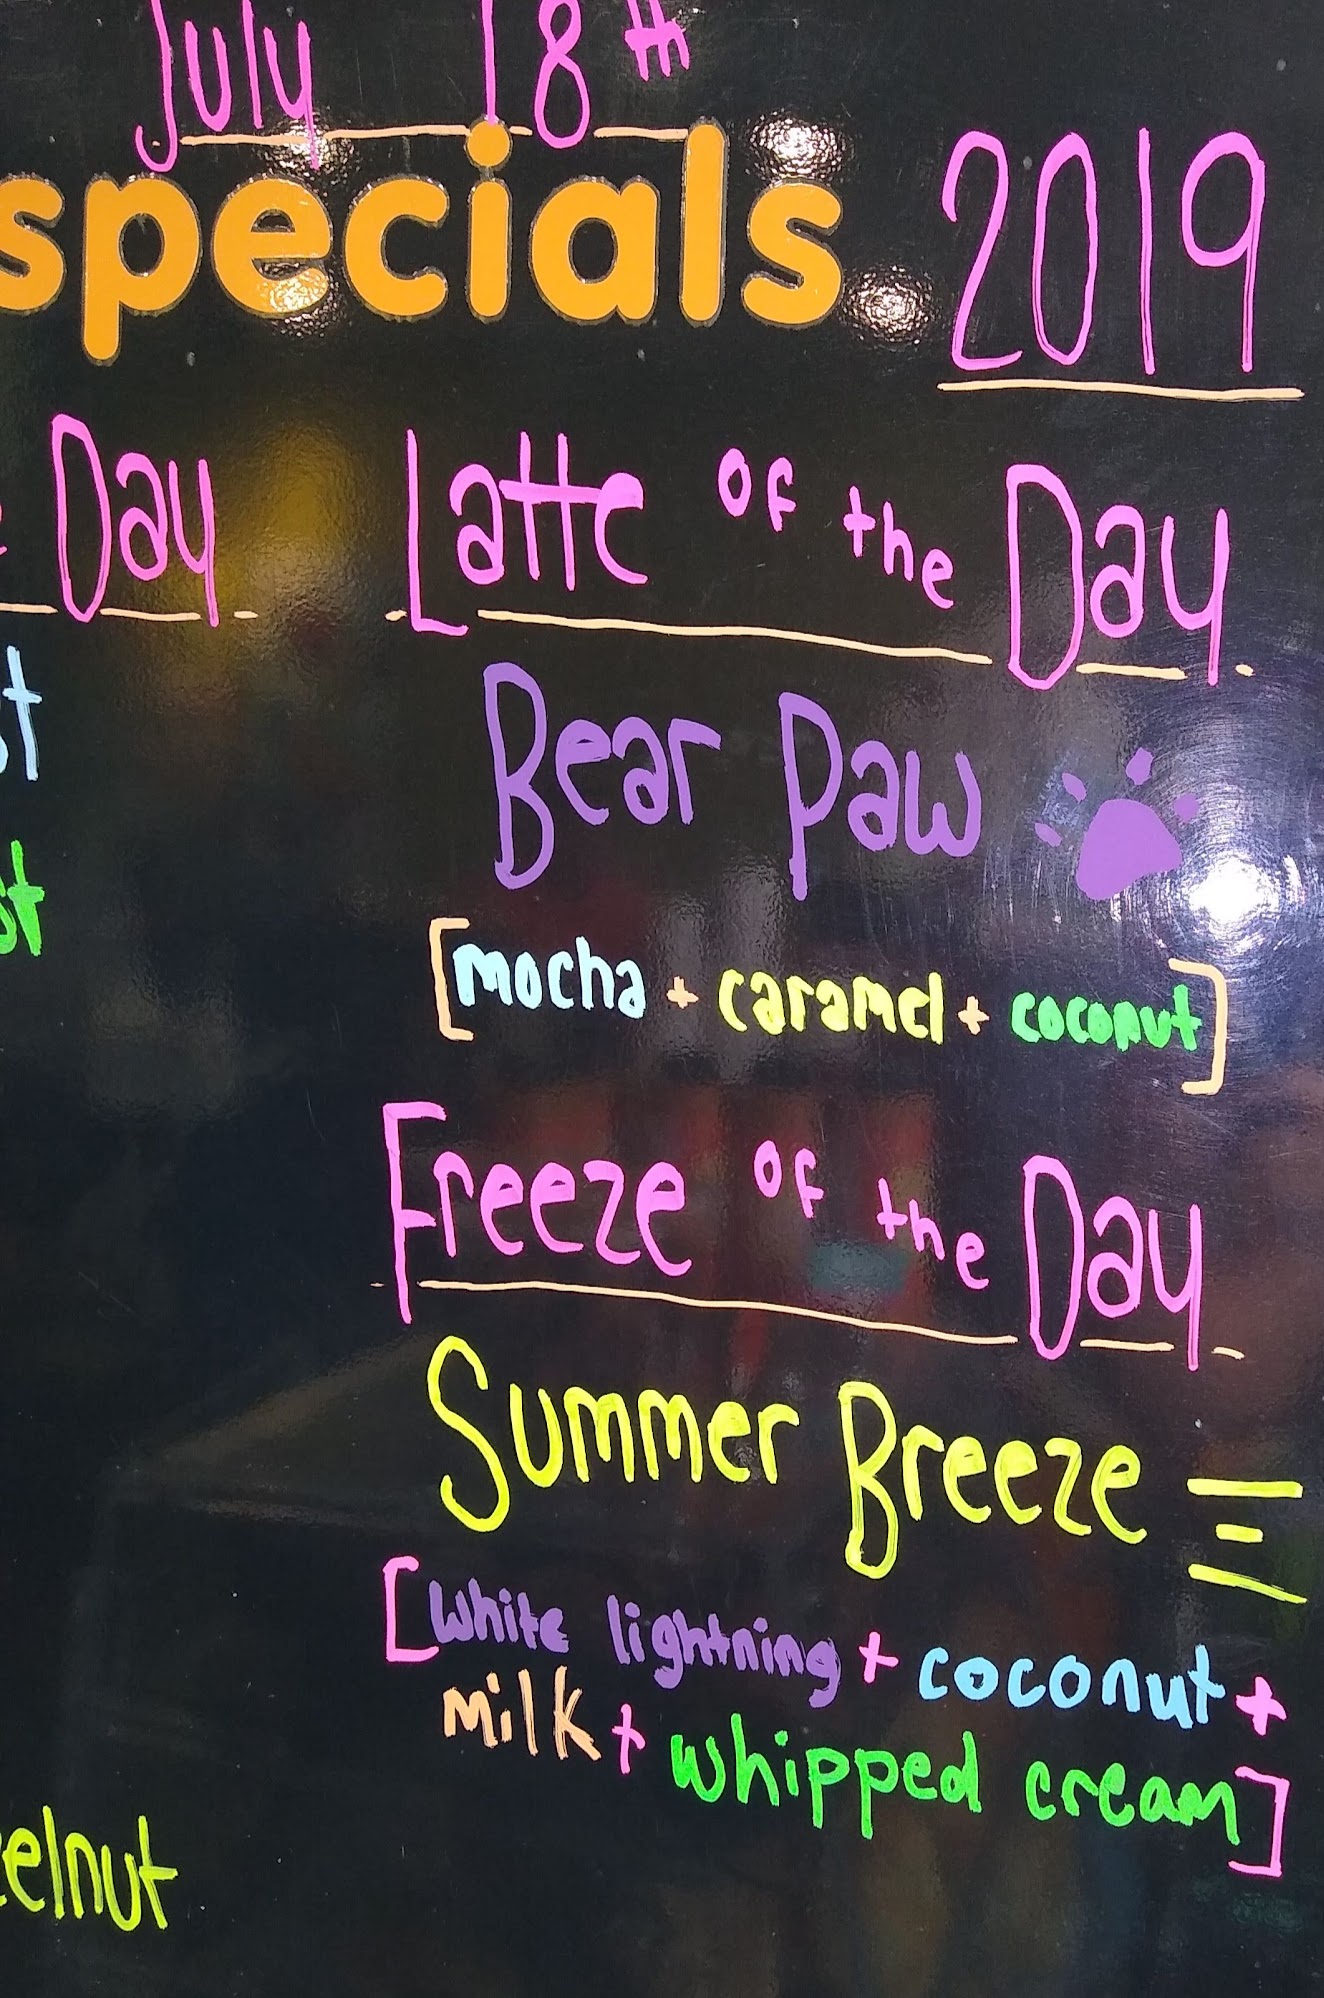 July 18th
specials 2019
Day
Latte of the Day
Bear Paw
[mocha + caramel + coconut]
Freeze of the Day
Summer Breeze
[white lightning + coconut +
milk + whipped cream]
elnut